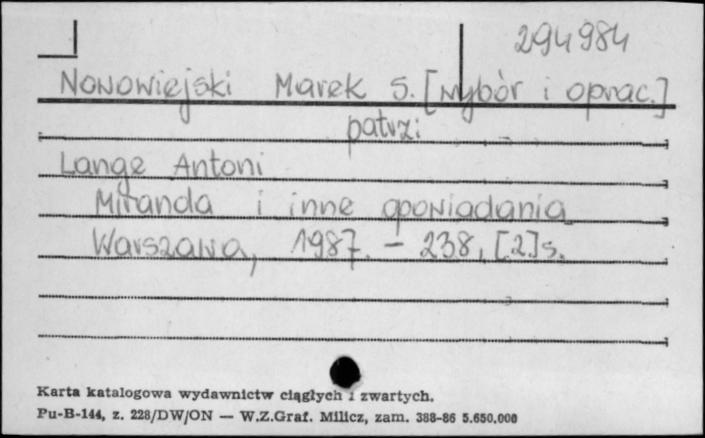 294984
Nowowiejski Marek S. [wybór i oprac.]
patrz:
Lange Antoni
Miranda i inne opowiadania
Warszawa, 1987. – 238, [2] s.
Karta katalogowa wydawnictw ciągłych i zwartych.
Pu-B-144, z. 228/DW/ON — W.Z.Graf. Milicz, zam. 388-86 5.650.000